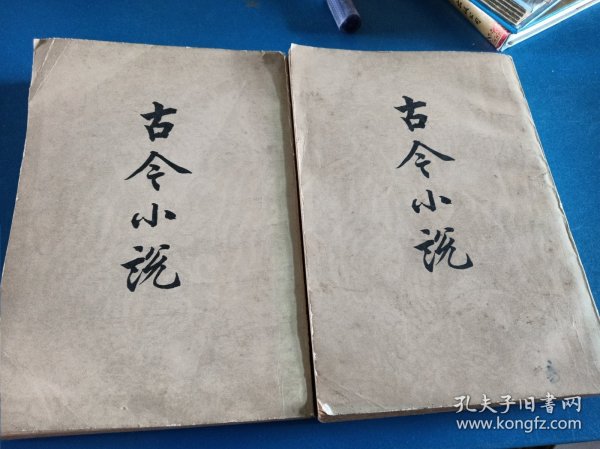 古今小説
古今小説
孔夫子旧書网
www.kongfz.com